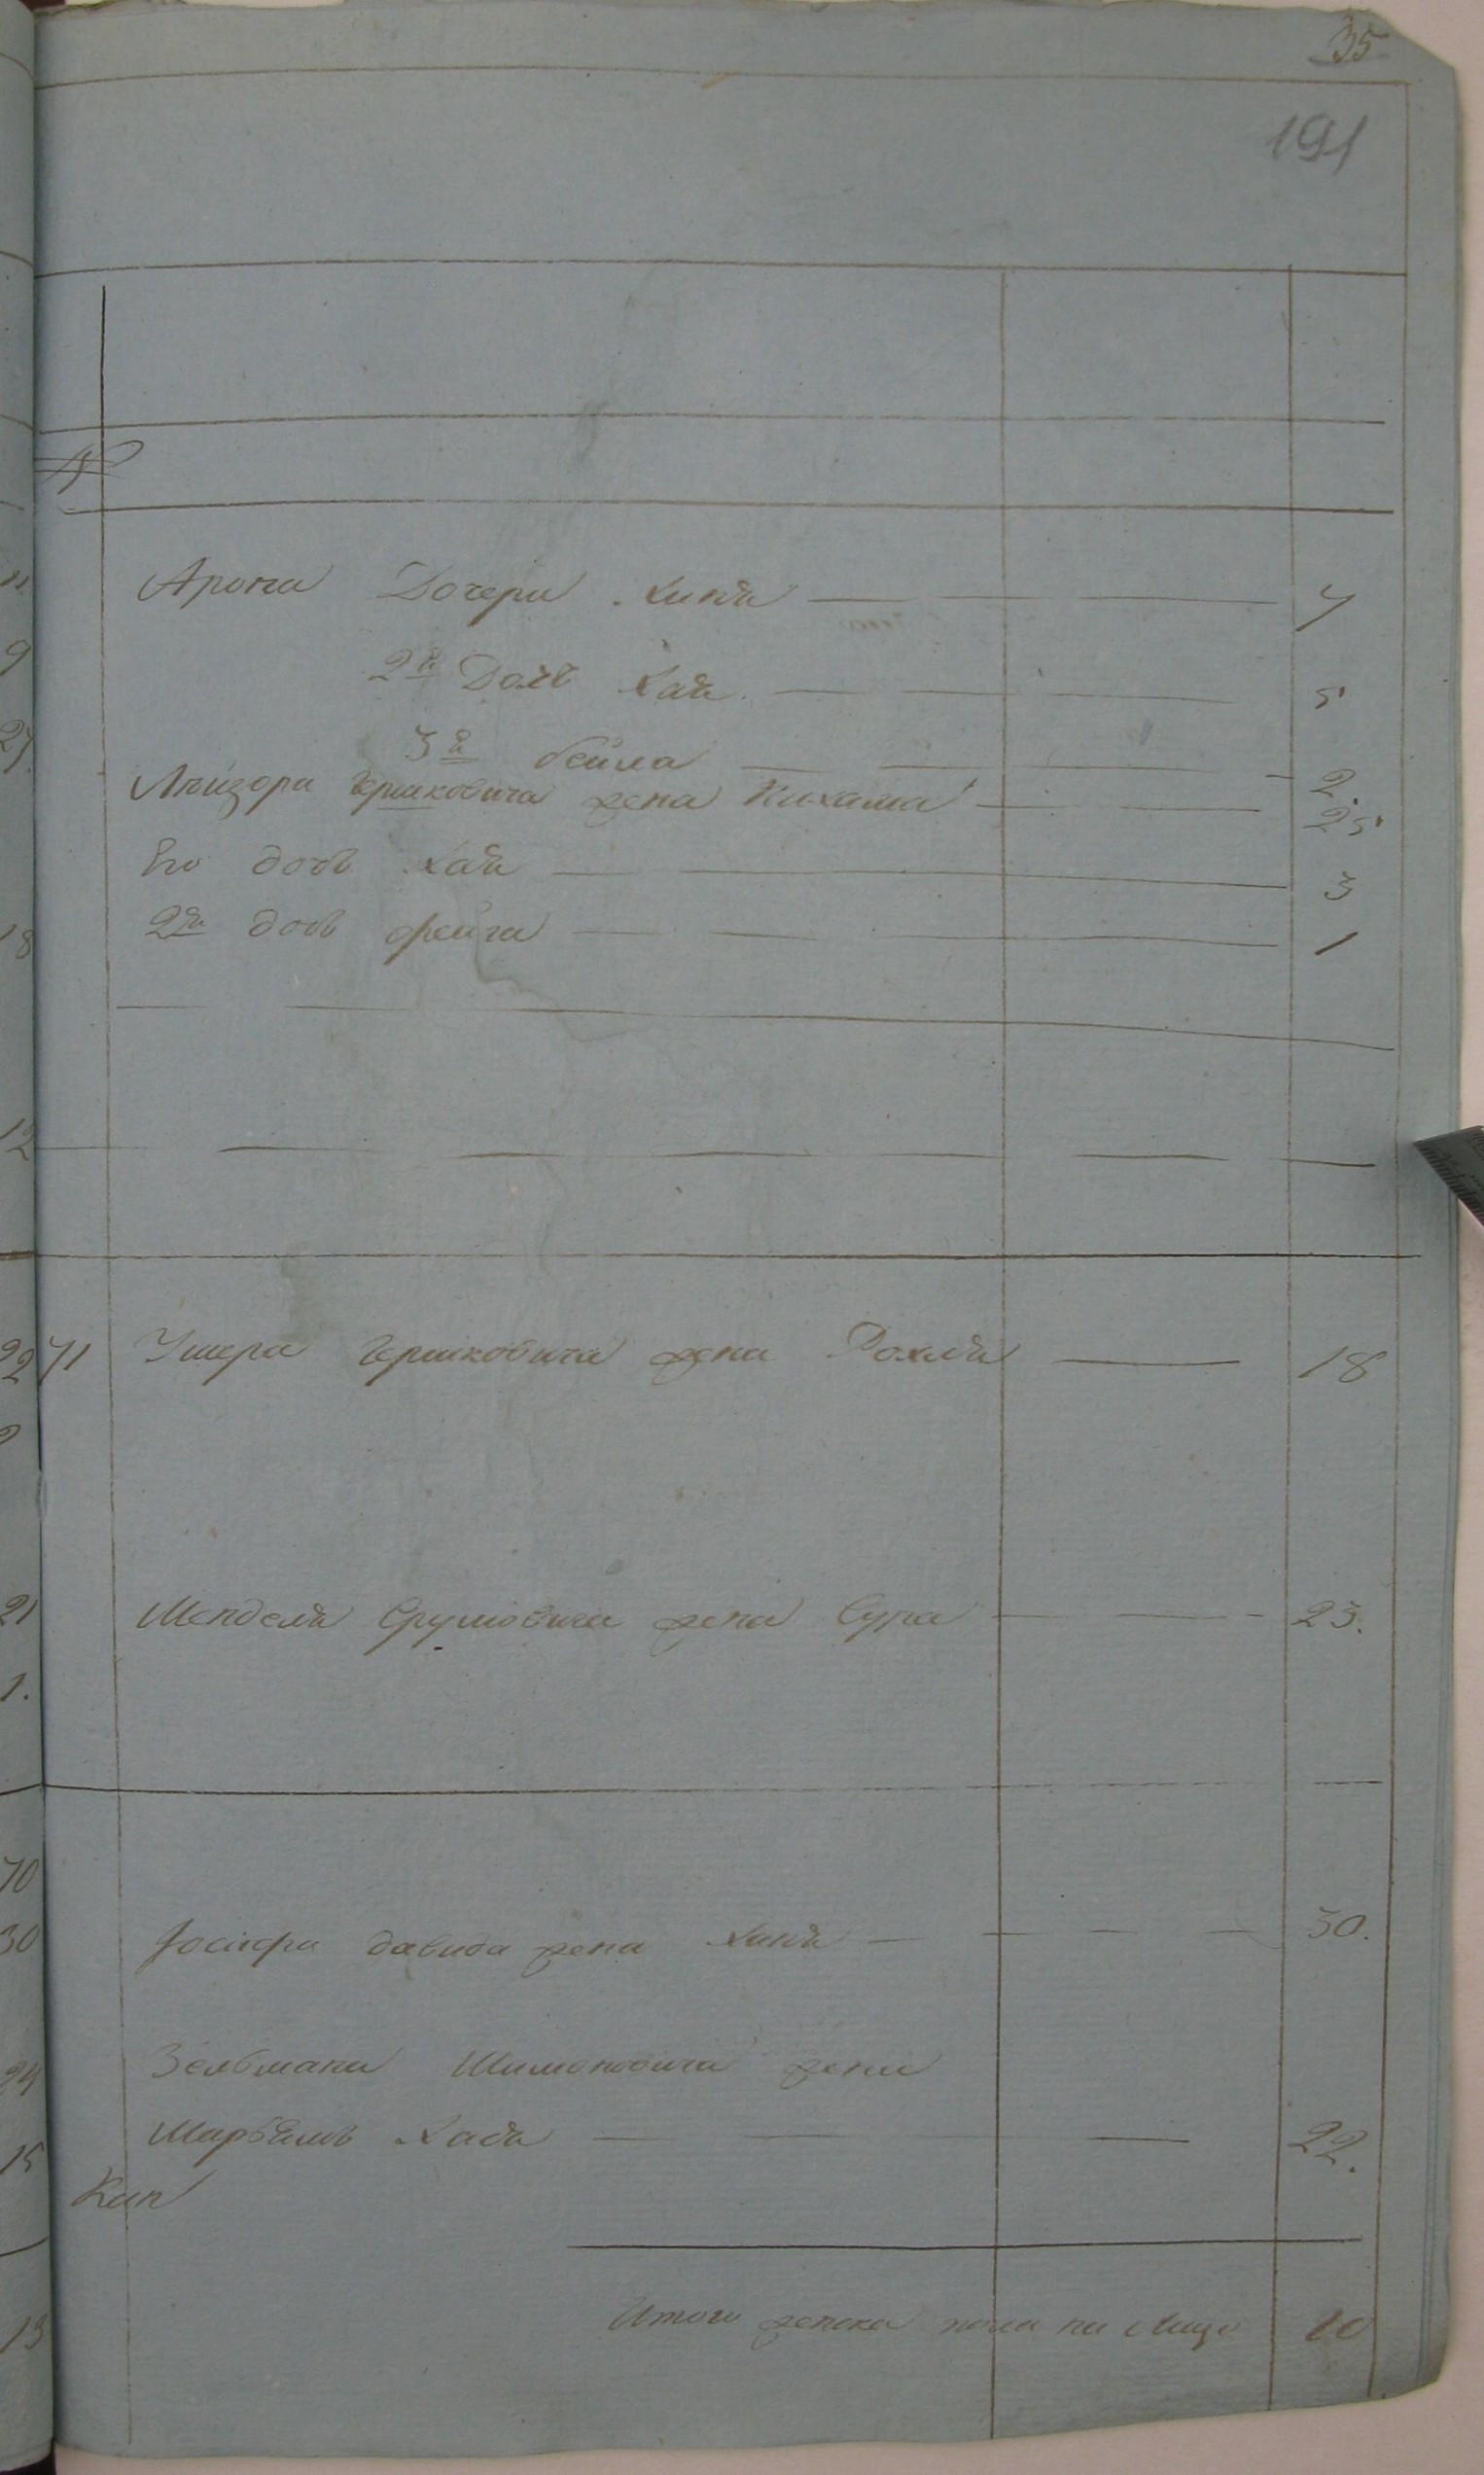 35
191
Арона Дочери Хиня 7
2я Дочь Хая 5
3я бейла 2.
Лейзора Гершковича жена Нихама 25
Его дочь Хая 3
2я дочь фейга 1
71 Ушера Гершковича жена Рохля 18
Менделя Срулiовича жена Сура 23.
Iосифа давида жена Хиня 30.
Зельмана Шимоновича жена
Марьямъ Хася 22.
Итого женска пола на лицо 10